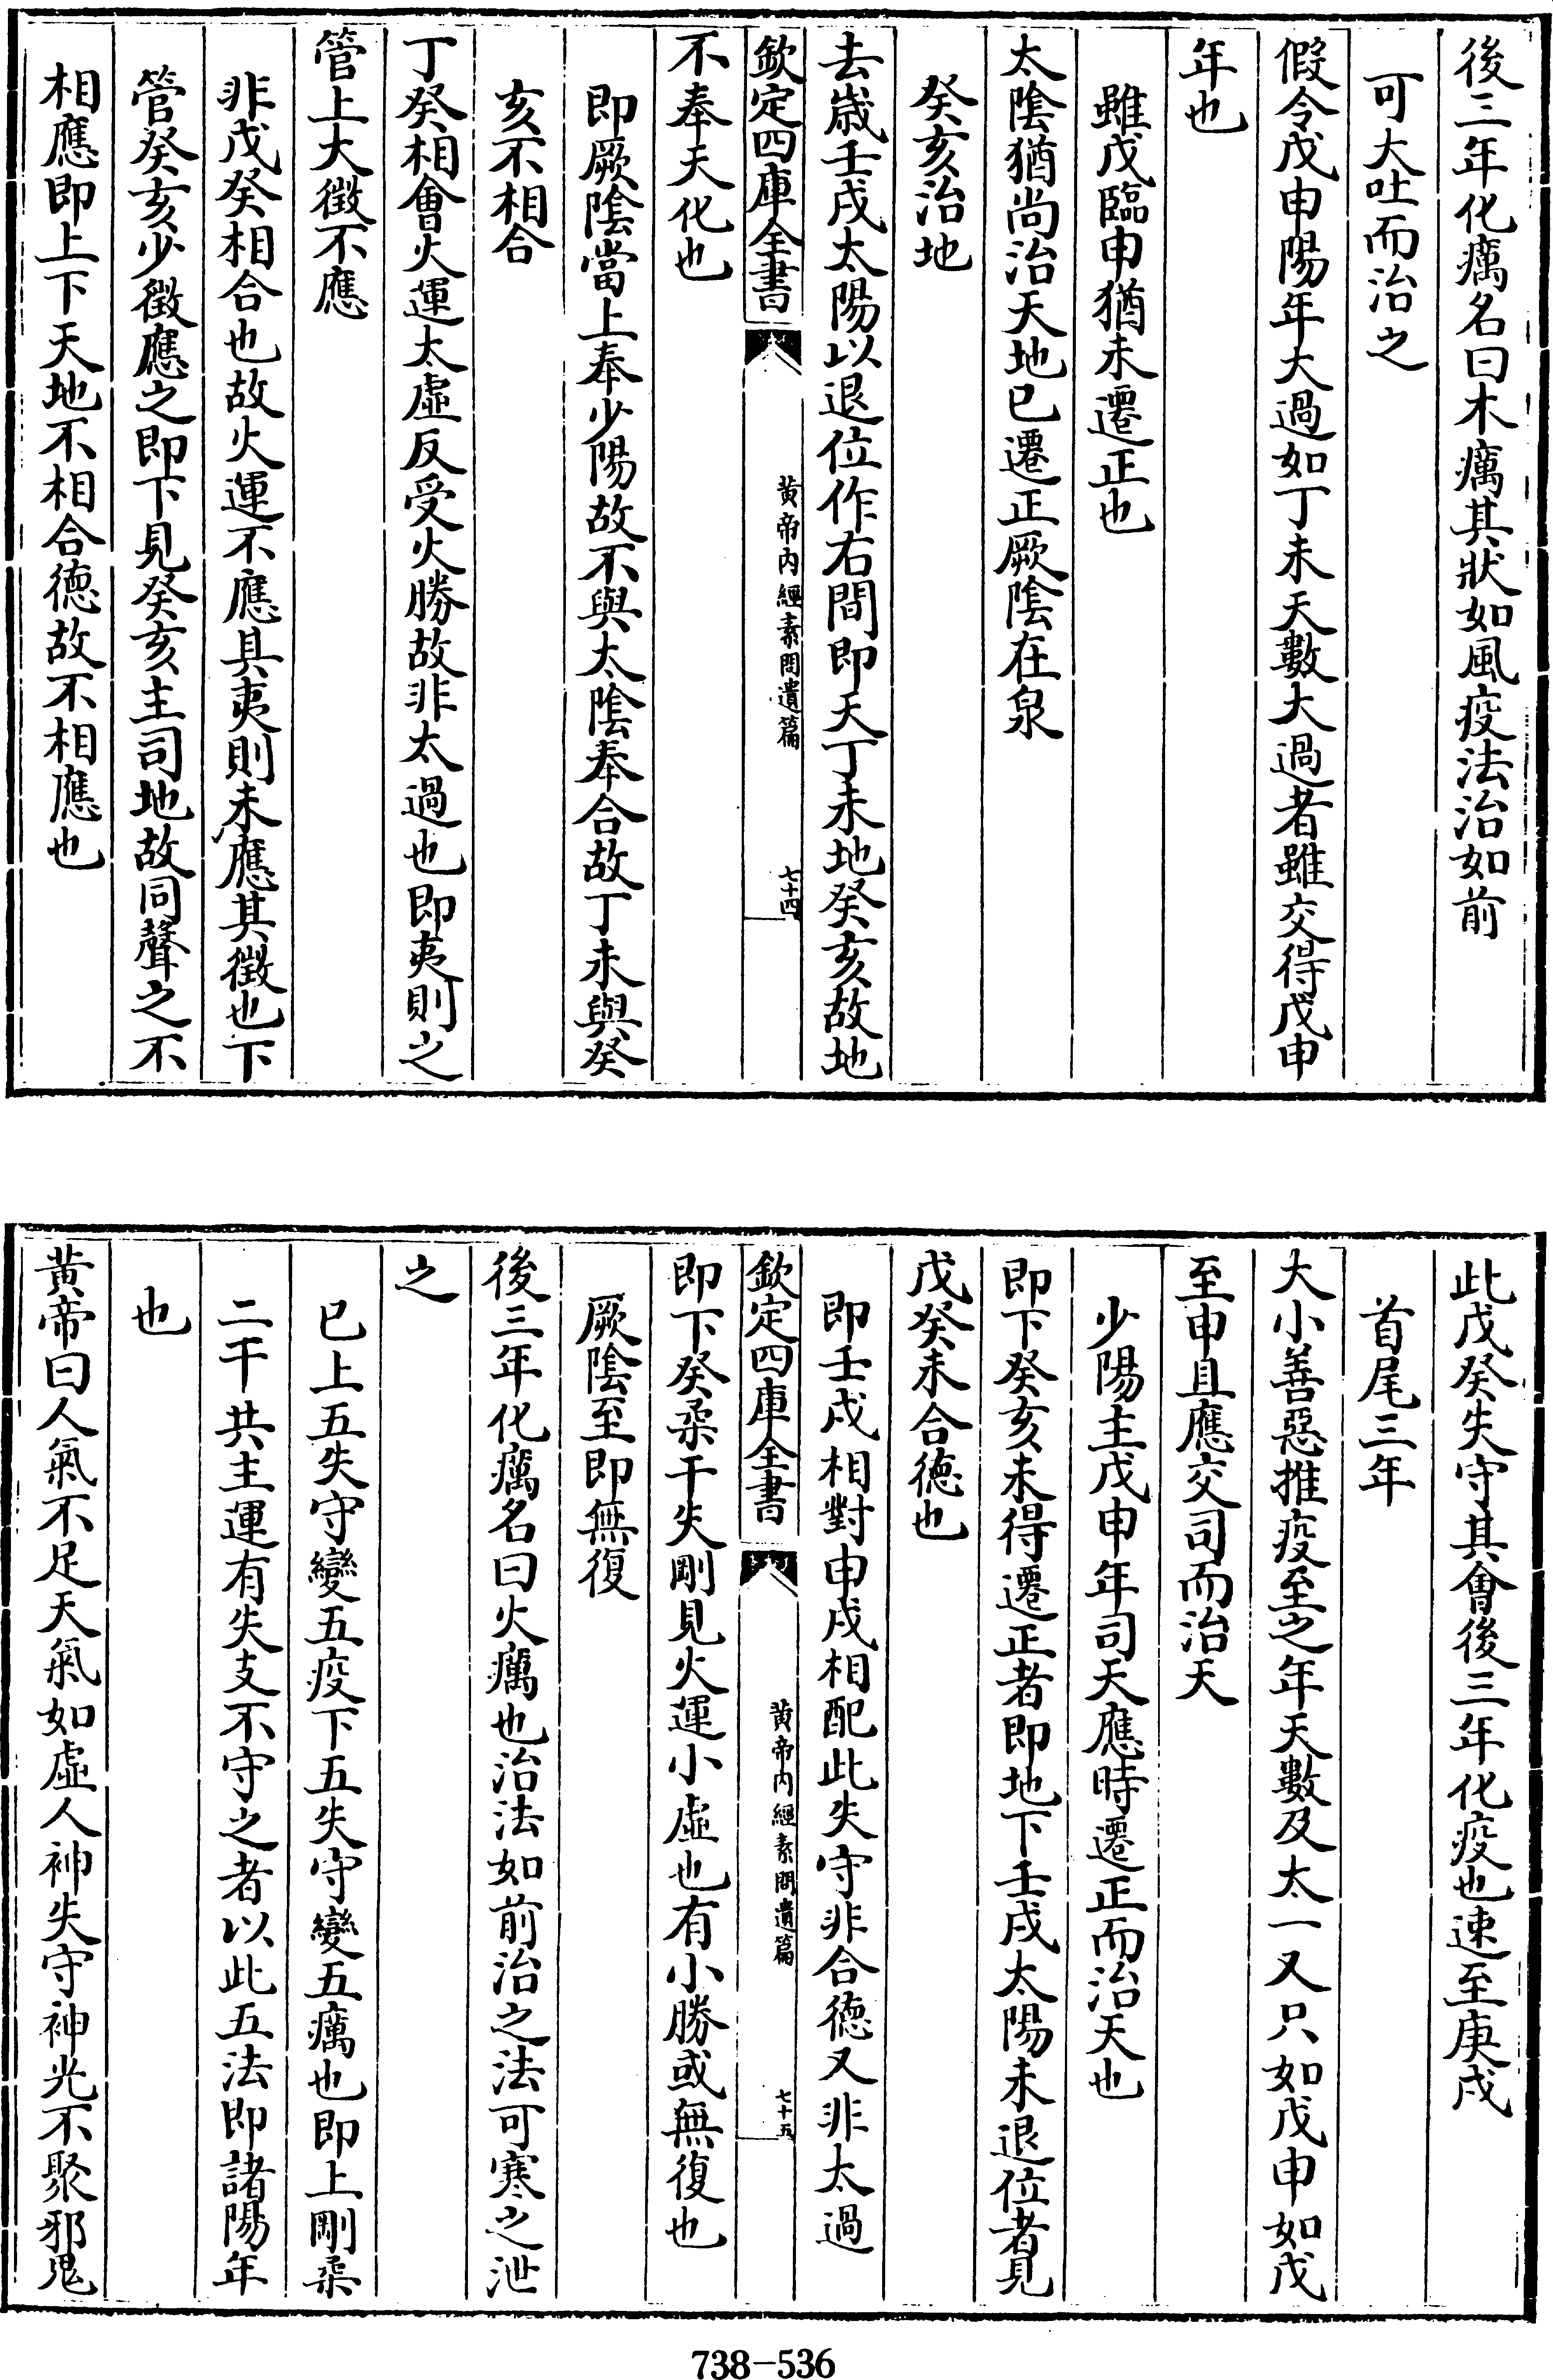 後三年化癘名曰木癘其狀如風疫法治如前
可大吐而治之
假令戊申陽年大過如丁未天數大過者雖交得戊申
年也
雖戊臨申猶未遷正也
太陰猶尚治天地已遷正厥陰在泉
癸亥治地
去嵗壬戌太陽以退位作右間即天丁未地癸亥故地
欽定四庫全書
黄帝内經素問遺篇
七十四
不奉天化也
即厥陰當上奉少陽故不與太陰奉合故丁未與癸
亥不相合
丁癸相會火運太虛反受火勝故非太過也即夷則之
管上大徴不應
非戊癸相合也故火運不應具夷則未應其徴也下
管癸亥少徴應之即下見癸亥主司地故同聲之不
相應即上下天地不相合徳故不相應也
此戊癸失守其會後三年化疫也速至庚戌
首尾三年
大小善惡推疫至之年天數及太一又只如戊申如戊
至申且應交司而治天
少陽主戊申年司天應時遷正而治天也
即下癸亥未得遷正者即地下壬戌太陽未退位者見
戊癸未合徳也
即壬戌相對申戌相配此失守非合徳又非太過
欽定四庫全書
黄帝内經素問遺篇
七十五
即下癸柔干失剛見火運小虛也有小勝或無復也
厥陰至即無復
後三年化癘名曰火癘也治法如前治之法可寒之泄
之
已上五失守變五疫下五失守變五癘也即上剛柔
二干共主運有失支不守之者以此五法即諸陽年
也
黄帝曰人氣不足天氣如虛人神失守神光不聚邪鬼
738-536